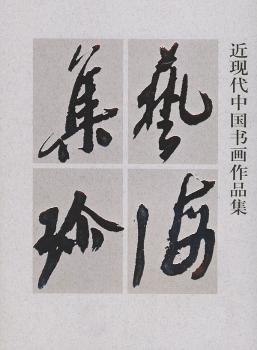 近现代中国书画作品集
藝海
集珍